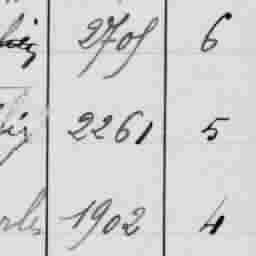 2705 6
2261 5
1902 4